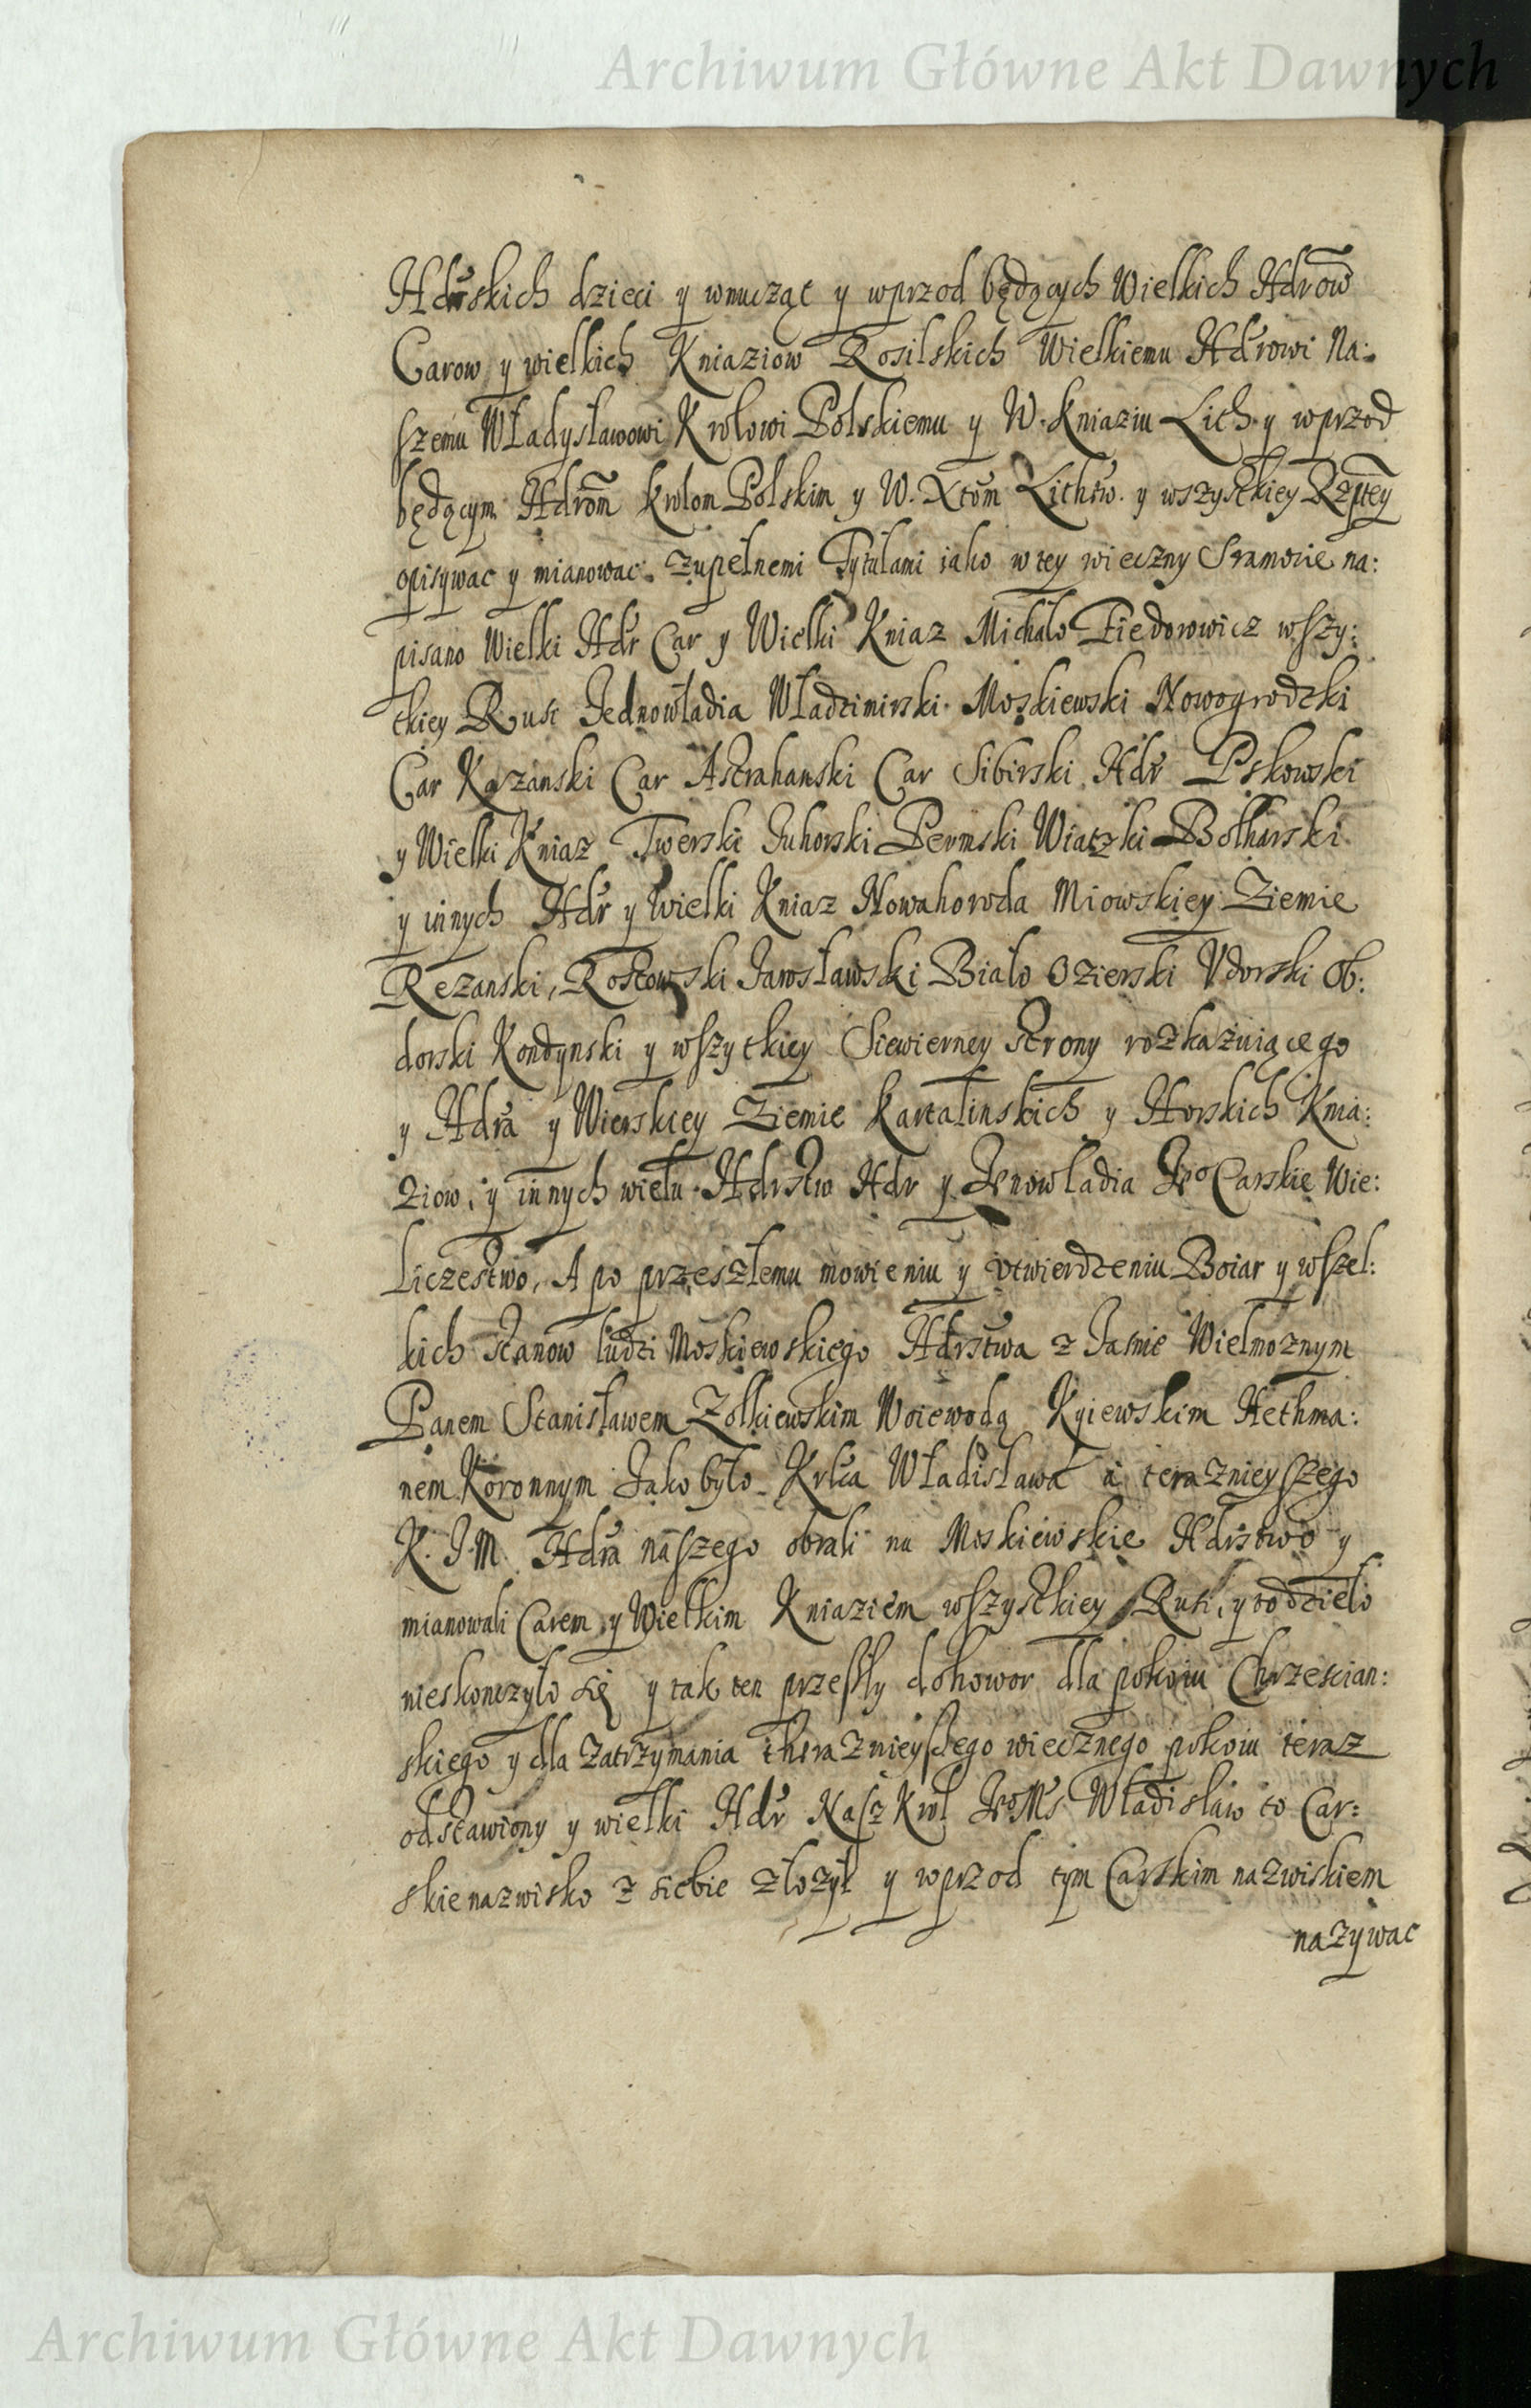 Archiwum Główne Akt Dawnych
Hdrskich dzieci y wnucząt y wprzod będących Wielkich Hdrow
Carow y wielkich Kniaziow Rosilskich Wielkiemu Hdrowi Na:
szemu Władysławowi Krolowi Polskiemu y W. Kniaziu Lith. y wprzod
będącym Hdrom Krolom Polskim y W. Xtom Lithw. y wszystkiey Rzptey
opisywac y mianowac zupełnemi Tytułami iako w tey wieczny Gramocie na:
pisano Wielki Hdr Car y Wielki Kniaz Michało Fiedorowicz wszy:
tkiey Rusi Jednowładia Władzimirski Moskiewski Nowogrodzki
Car Kazanski Car Astrahanski Car Sibirski Hdr Pskowski
y Wielki Kniaz Twerski Juhorski Permski Wiatzki Bolharski
y innych Hdr y Wielki Kniaz Nowahoroda Miowskiey Ziemie
Rezanski, Rostowski Jarosławski Biało Ozierski Udorski Ob:
dorski Kondynski y wszytkiey Siewierney strony rozkazuiącego
y Hdra y Wierskiey Ziemie Kartalinskich y Horskich Knia:
ziow, y innych wielu Hdrstw Hdr y Jednowładia Jo Carskie Wie:
liczestwo, A po przeszłemu mowieniu y utwierdzeniu Boiar y wszel:
kich stanow ludzi Moskiewskiego Hdrstwa z Jasnie Wielmoznym
Panem Stanisławem Zołkiewskim Woiewodą Kyiewskim Hethma:
nem Koronnym Jako było Krlca Władisława a teraznieyszego
K. J. M. Hdra naszego obrali na Moskiewskie Hdrstwo y
mianowali Carem y Wielkim Kniaziem wszystkiey Rusi, y to dzieło
nieskonczyło się y tak ten przeszły dohowor dla pokoiu Chrzescian:
skiego y dla zatrzymania theraznieyszego wiecznego pokoiu teraz
odstawiony y wielki Hdr Nasz Krol JoMs Władisław to Car:
skie nazwisko z siebie złozył y wprzod tym Carskim nazwiskiem
nazywac
Archiwum Główne Akt Dawnych